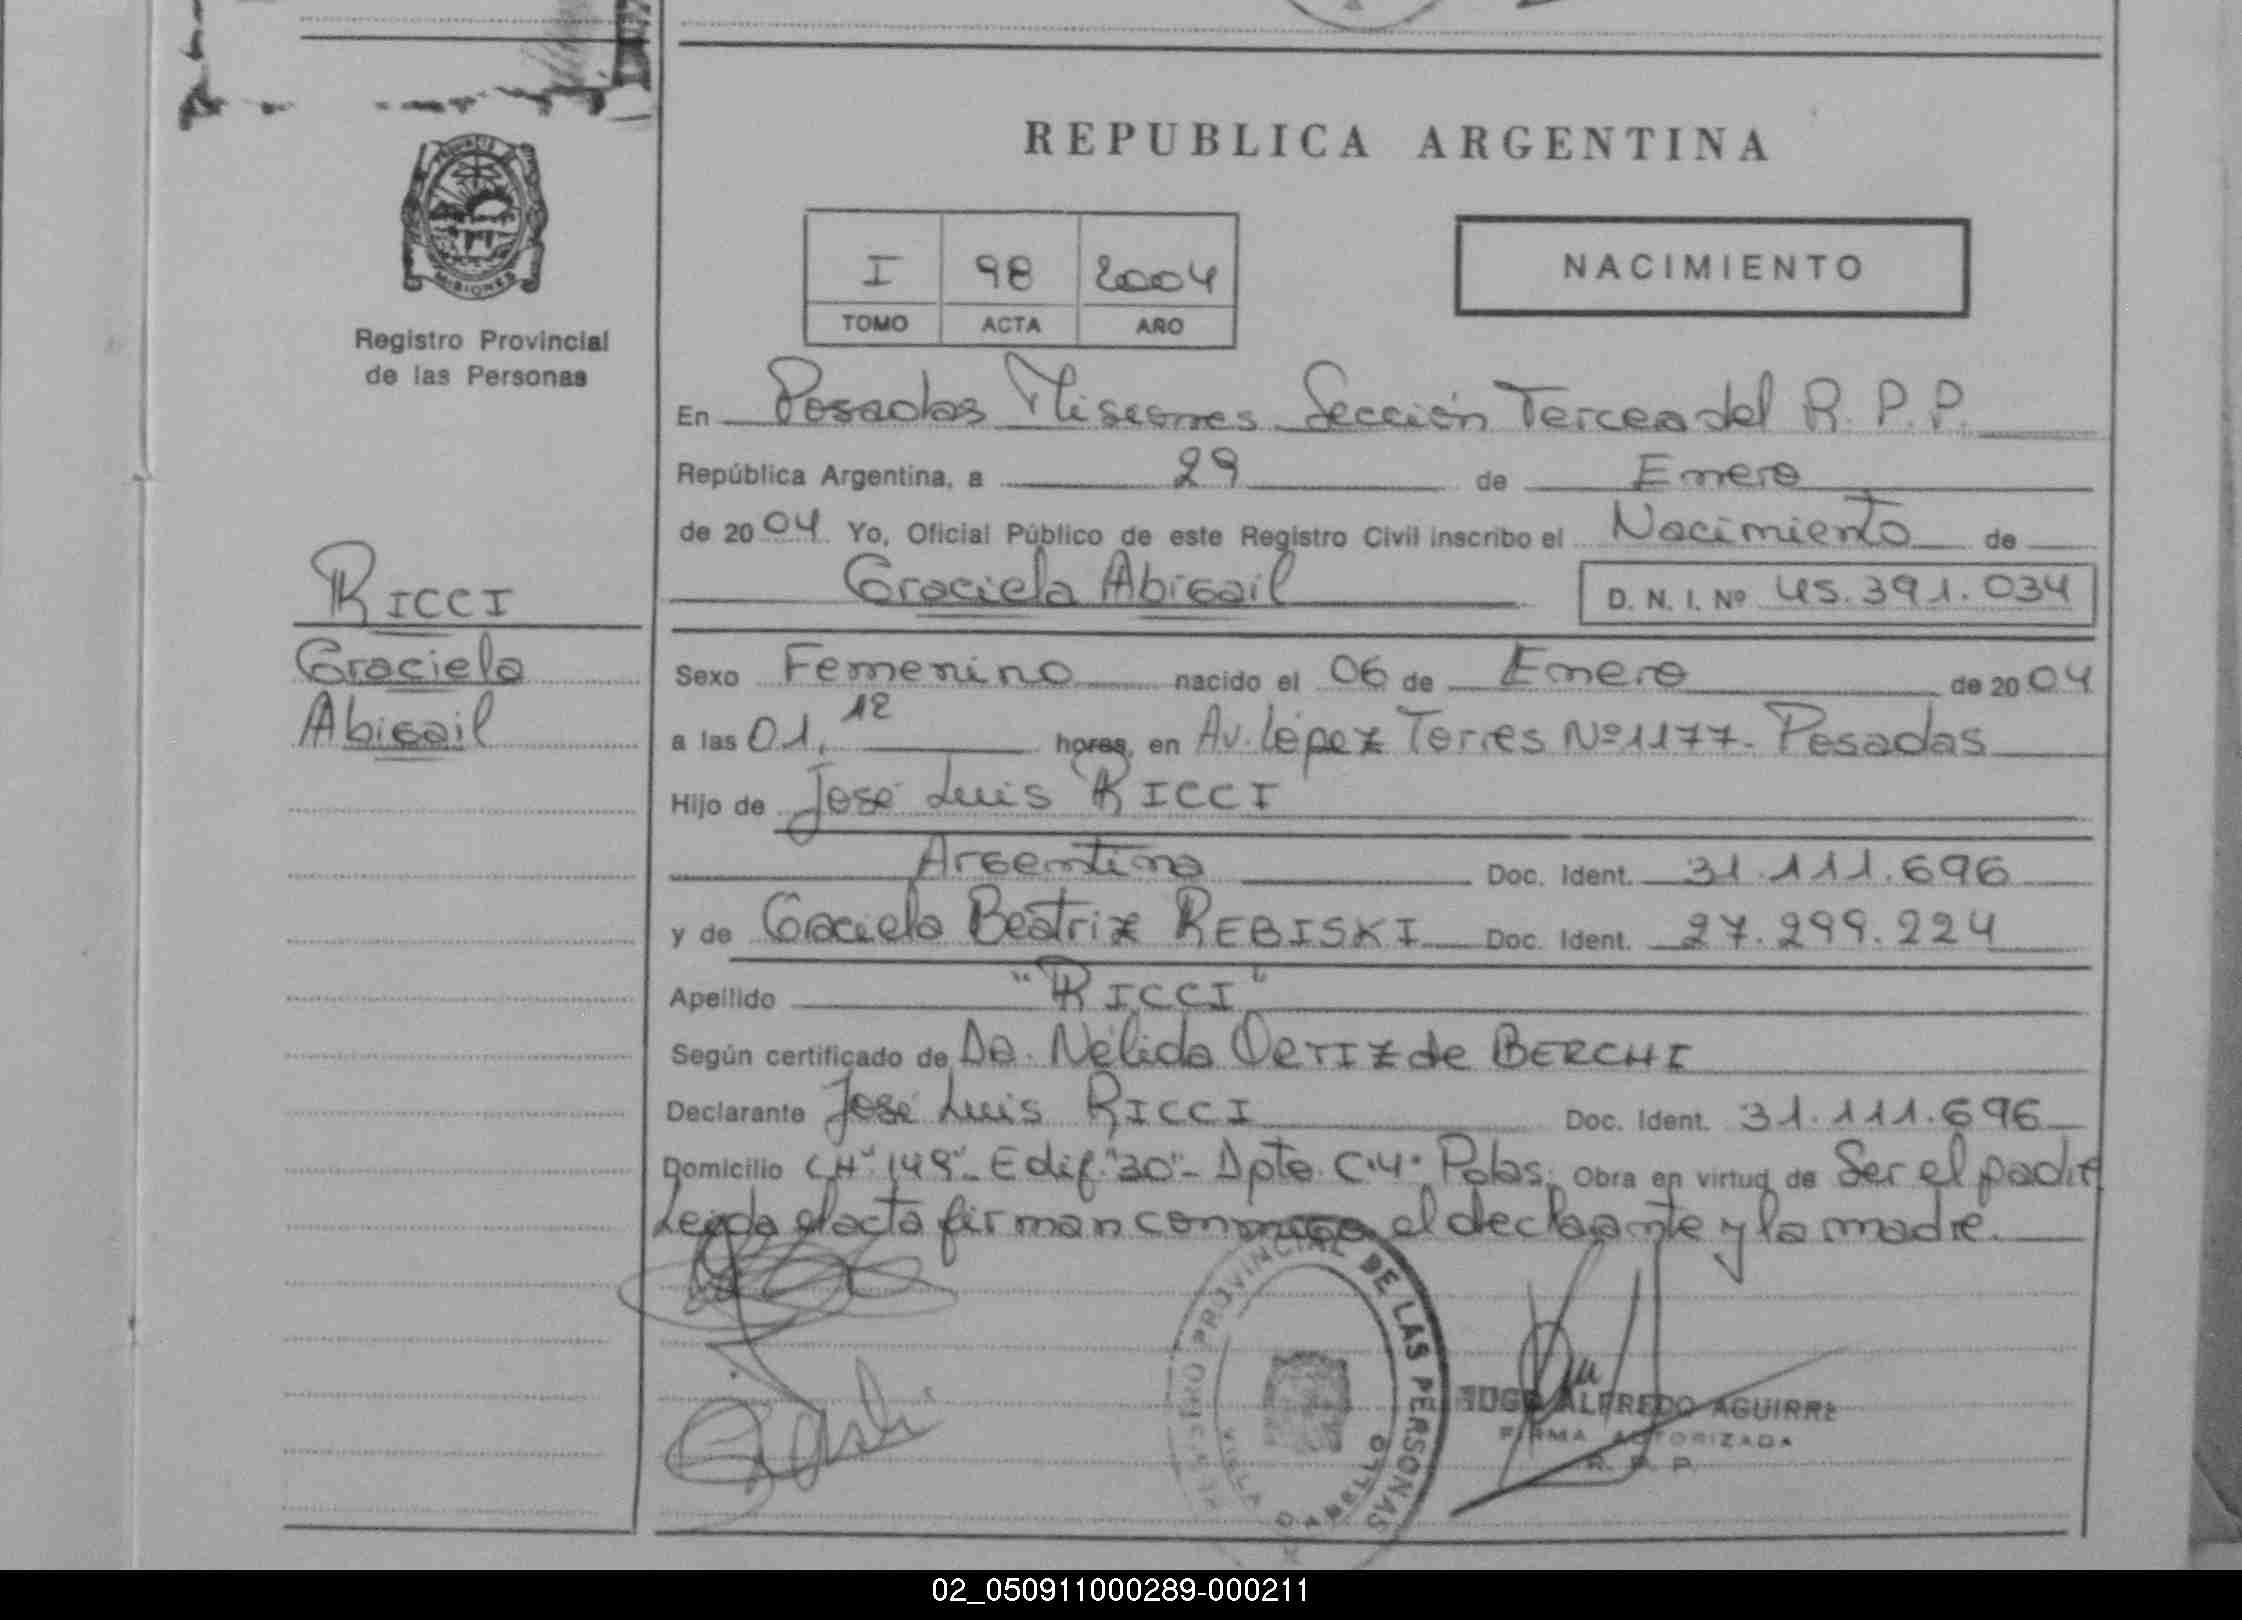 REPUBLICA ARGENTINA
PROVINCIA DE
MISIONES
Registro Provincial
de las Personas
I 98 2004
TOMO ACTA AÑO
NACIMIENTO
En Posadas Misiones Sección Tercea del R. P. P.
República Argentina, a 29 de Enero
de 2004 Yo, Oficial Público de este Registro Civil inscribo el Nacimiento de
Graciela Abigail D. N. I. Nº 45.391.034
RICCI
Graciela
Abigail
Sexo Femenino nacido el 06 de Enero de 2004
a las 01,12 horas, en Av. López Torres Nº 1177- Posadas
Hijo de José Luis RICCI
Argentina Doc. Ident. 31.111.696
y de Graciela Beatriz REBISKI Doc. Ident. 27.299.224
Apellido "RICCI"
Según certificado de Da. Nélida ORTIZ de BERCHI
Declarante José Luis RICCI Doc. Ident. 31.111.696
Domicilio CH "149"- Edif. "30"- Dpto. C."4" Pdas. Obra en virtud de Ser el padre
Leída el acta firman conmigo el declarante y la madre.
REGISTRO PROVINCIAL DE LAS PERSONAS
VILLA CABELLO
HUGO ALFREDO AGUIRRE
FIRMA AUTORIZADA
R. P. P.
02_050911000289-000211